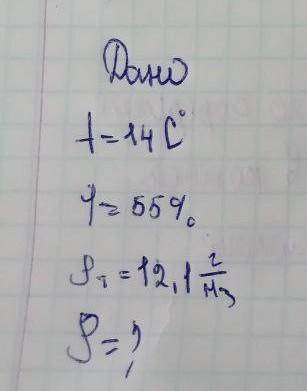 Дано
t=14 C°
φ=55%
ρ₁=12,1 г/м3
ρ=?